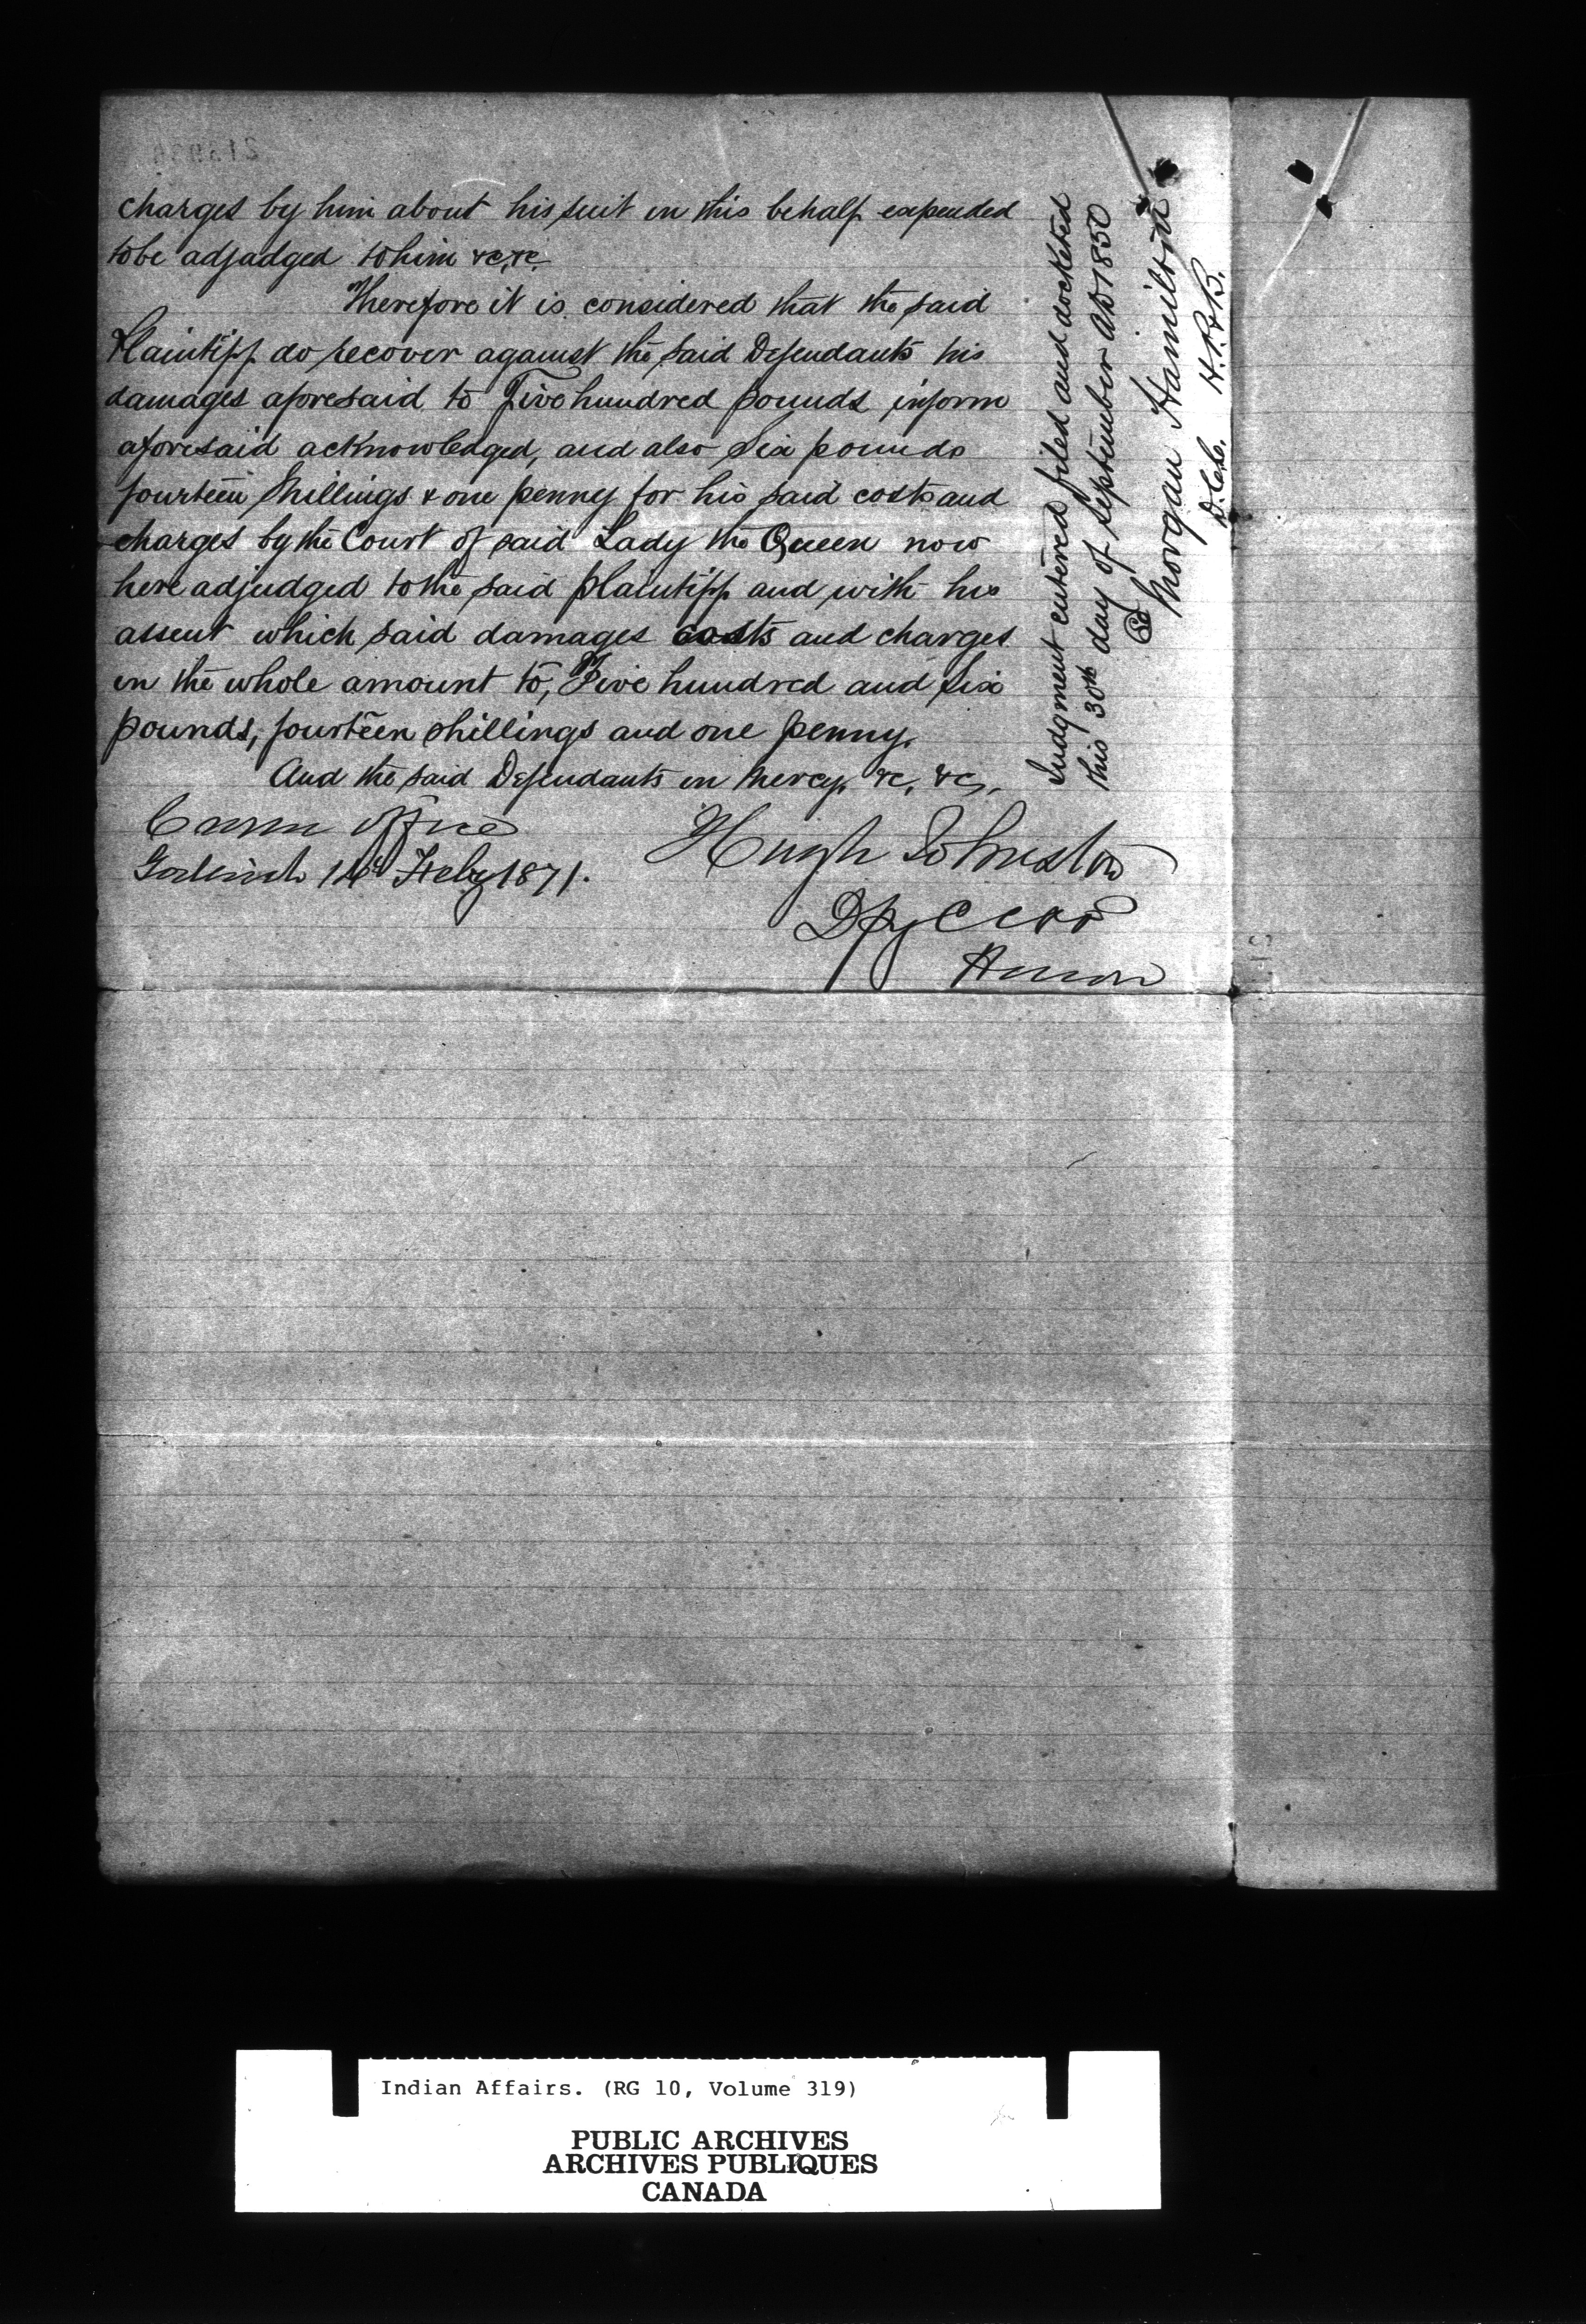 charges by him about his suit in this behalf expended
to be adjudged to him &c, &c.
Therefore it is considered that the said
Plaintiff do recover against the said Defendants his
damages aforesaid to Five hundred pounds in form
aforesaid acknowledged, and also Six pounds
fourteen Shillings & one penny for his said costs and
charges by the Court of said Lady the Queen now
here adjudged to the said plaintiff and with his
assent which said damages costs and charges
in the whole amount to, Five hundred and six
pounds, fourteen shillings and one penny.
And the said Defendants in Mercy, &c, &c,.
Crown Office
Goderich 14th Feby 1871.
Hugh Johnston
Dpy C C & P
Huron
Judgment entered filed and docketed
this 30th day of September AD 1850
Sd Morgan Hamilton
D.C.C. H.P.&B.
Indian Affairs. (RG 10, Volume 319)
PUBLIC ARCHIVES
ARCHIVES PUBLIQUES
CANADA